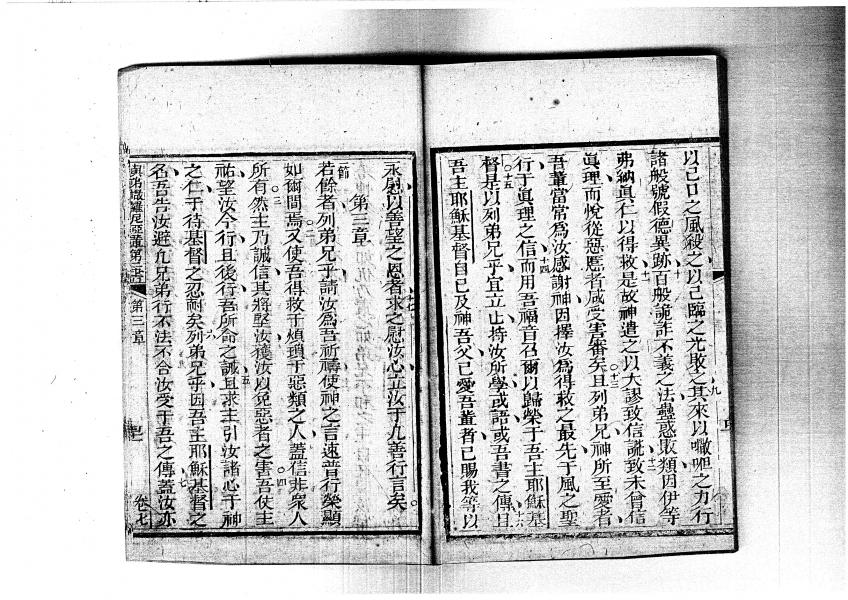 以己口之風殺之以己臨之光敗之其來以嚈呭之力行
諸般號假德異跡百般詭詐不義之法蠱惑敗類因伊等
弗納眞仁以得救是故神遣之以大謬致信謊致未曾信
眞理而悅從惡慝者咸受害審矣且列弟兄神所至愛者
吾輩當常爲汝感謝神因擇汝爲得救之最先于風之聖
行于眞理之信而用吾福音召爾以歸榮于吾主耶穌基
督是以列弟兄乎宜立止持汝所學或語或吾書之傳且
吾主耶穌基督自己及神吾父已愛吾輩者已賜我等以
永慰以善望之恩者求之慰汝心立汝于凡善行言矣
第三章
若餘者列弟兄乎請汝爲吾祈禱使神之言速普行榮顯
如爾間焉又使吾得救于煩瑣于惡類之人蓋信非衆人
所有然主乃誠信其將堅汝獲汝以免惡者之害吾仗主
祐望汝今行且後行吾所命之誡且求主引汝諸心于神
之仁于待基督之忍耐矣列弟兄乎因吾主耶穌基督之
名吾告汝避凡兄弟行不法不合汝受于吾之傳蓋汝亦
第三章
卷七